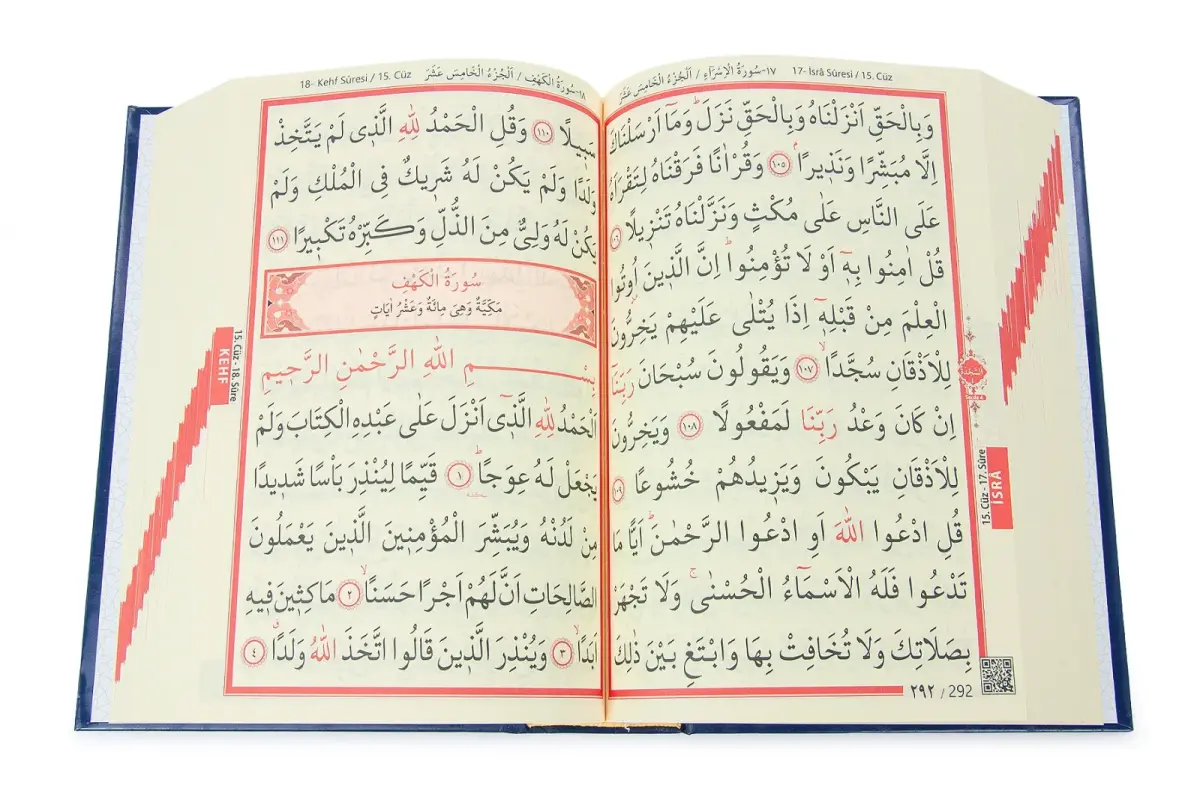 17- İsrâ Sûresi / 15. Cüz ١٧-سُورَةُ الْاِسْرَٓاءِ / اَلْجُزْءُ الْخَامِسَ عَشَرَ
وَبِالْحَقِّ اَنْزَلْنَاهُ وَبِالْحَقِّ نَزَلَۜ وَمَٓا اَرْسَلْنَاكَ
اِلَّا مُبَشِّرًا وَنَذ۪يرًاۢ ١٠٥ وَقُرْاٰنًا فَرَقْنَاهُ لِتَقْرَاَهُ
عَلَى النَّاسِ عَلٰى مُكْثٍ وَنَزَّلْنَاهُ تَنْز۪يلًا ١٠٦
قُلْ اٰمِنُوا بِه۪ٓ اَوْ لَا تُؤْمِنُواۜ اِنَّ الَّذ۪ينَ اُو۫تُوا
الْعِلْمَ مِنْ قَبْلِه۪ٓ اِذَا يُتْلٰى عَلَيْهِمْ يَخِرُّونَ
لِلْاَذْقَانِ سُجَّدًاۙ ١٠٧ وَيَقُولُونَ سُبْحَانَ رَبِّنَٓا
اِنْ كَانَ وَعْدُ رَبِّنَا لَمَفْعُولًا ١٠٨ وَيَخِرُّونَ
لِلْاَذْقَانِ يَبْكُونَ وَيَز۪يدُهُمْ خُشُوعًا ١٠٩
قُلِ ادْعُوا اللّٰهَ اَوِ ادْعُوا الرَّحْمٰنَۜ اَيًّا مَا
تَدْعُوا فَلَهُ الْاَسْمَٓاءُ الْحُسْنٰىۚ وَلَا تَجْهَرْ
بِصَلَاتِكَ وَلَا تُخَافِتْ بِهَا وَابْتَغِ بَيْنَ ذٰلِكَ
٢٩٢ / 292
اَلسَّجْدَة
Secde 4
15. Cüz - 17. Sûre
İSRÂ
18- Kehf Sûresi / 15. Cüz ١٨-سُورَةُ الْكَهْفِ / اَلْجُزْءُ الْخَامِسَ عَشَرَ
سَب۪يلًا ١١٠ وَقُلِ الْحَمْدُ لِلّٰهِ الَّذ۪ي لَمْ يَتَّخِذْ
وَلَدًا وَلَمْ يَكُنْ لَهُ شَر۪يكٌ فِي الْمُلْكِ وَلَمْ
يَكُنْ لَهُ وَلِيٌّ مِنَ الذُّلِّ وَكَبِّرْهُ تَكْب۪يرًا ١١١
سُورَةُ الْكَهْفِ
مَكِّيَّةٌ وَهِيَ مِائَةٌ وَعَشْرُ اٰيَاتٍ
بِسْمِ اللّٰهِ الرَّحْمٰنِ الرَّح۪يمِ
اَلْحَمْدُ لِلّٰهِ الَّذ۪ٓي اَنْزَلَ عَلٰى عَبْدِهِ الْكِتَابَ وَلَمْ
يَجْعَلْ لَهُ عِوَجًاۜ ١ قَيِّمًا لِيُنْذِرَ بَأْسًا شَد۪يدًا
مِنْ لَدُنْهُ وَيُبَشِّرَ الْمُؤْمِن۪ينَ الَّذ۪ينَ يَعْمَلُونَ
الصَّالِحَاتِ اَنَّ لَهُمْ اَجْرًا حَسَنًاۙ ٢ مَاكِث۪ينَ ف۪يهِ
اَبَدًاۙ ٣ وَيُنْذِرَ الَّذ۪ينَ قَالُوا اتَّخَذَ اللّٰهُ وَلَدًاۗ ٤
15. Cüz - 18. Sûre
KEHF